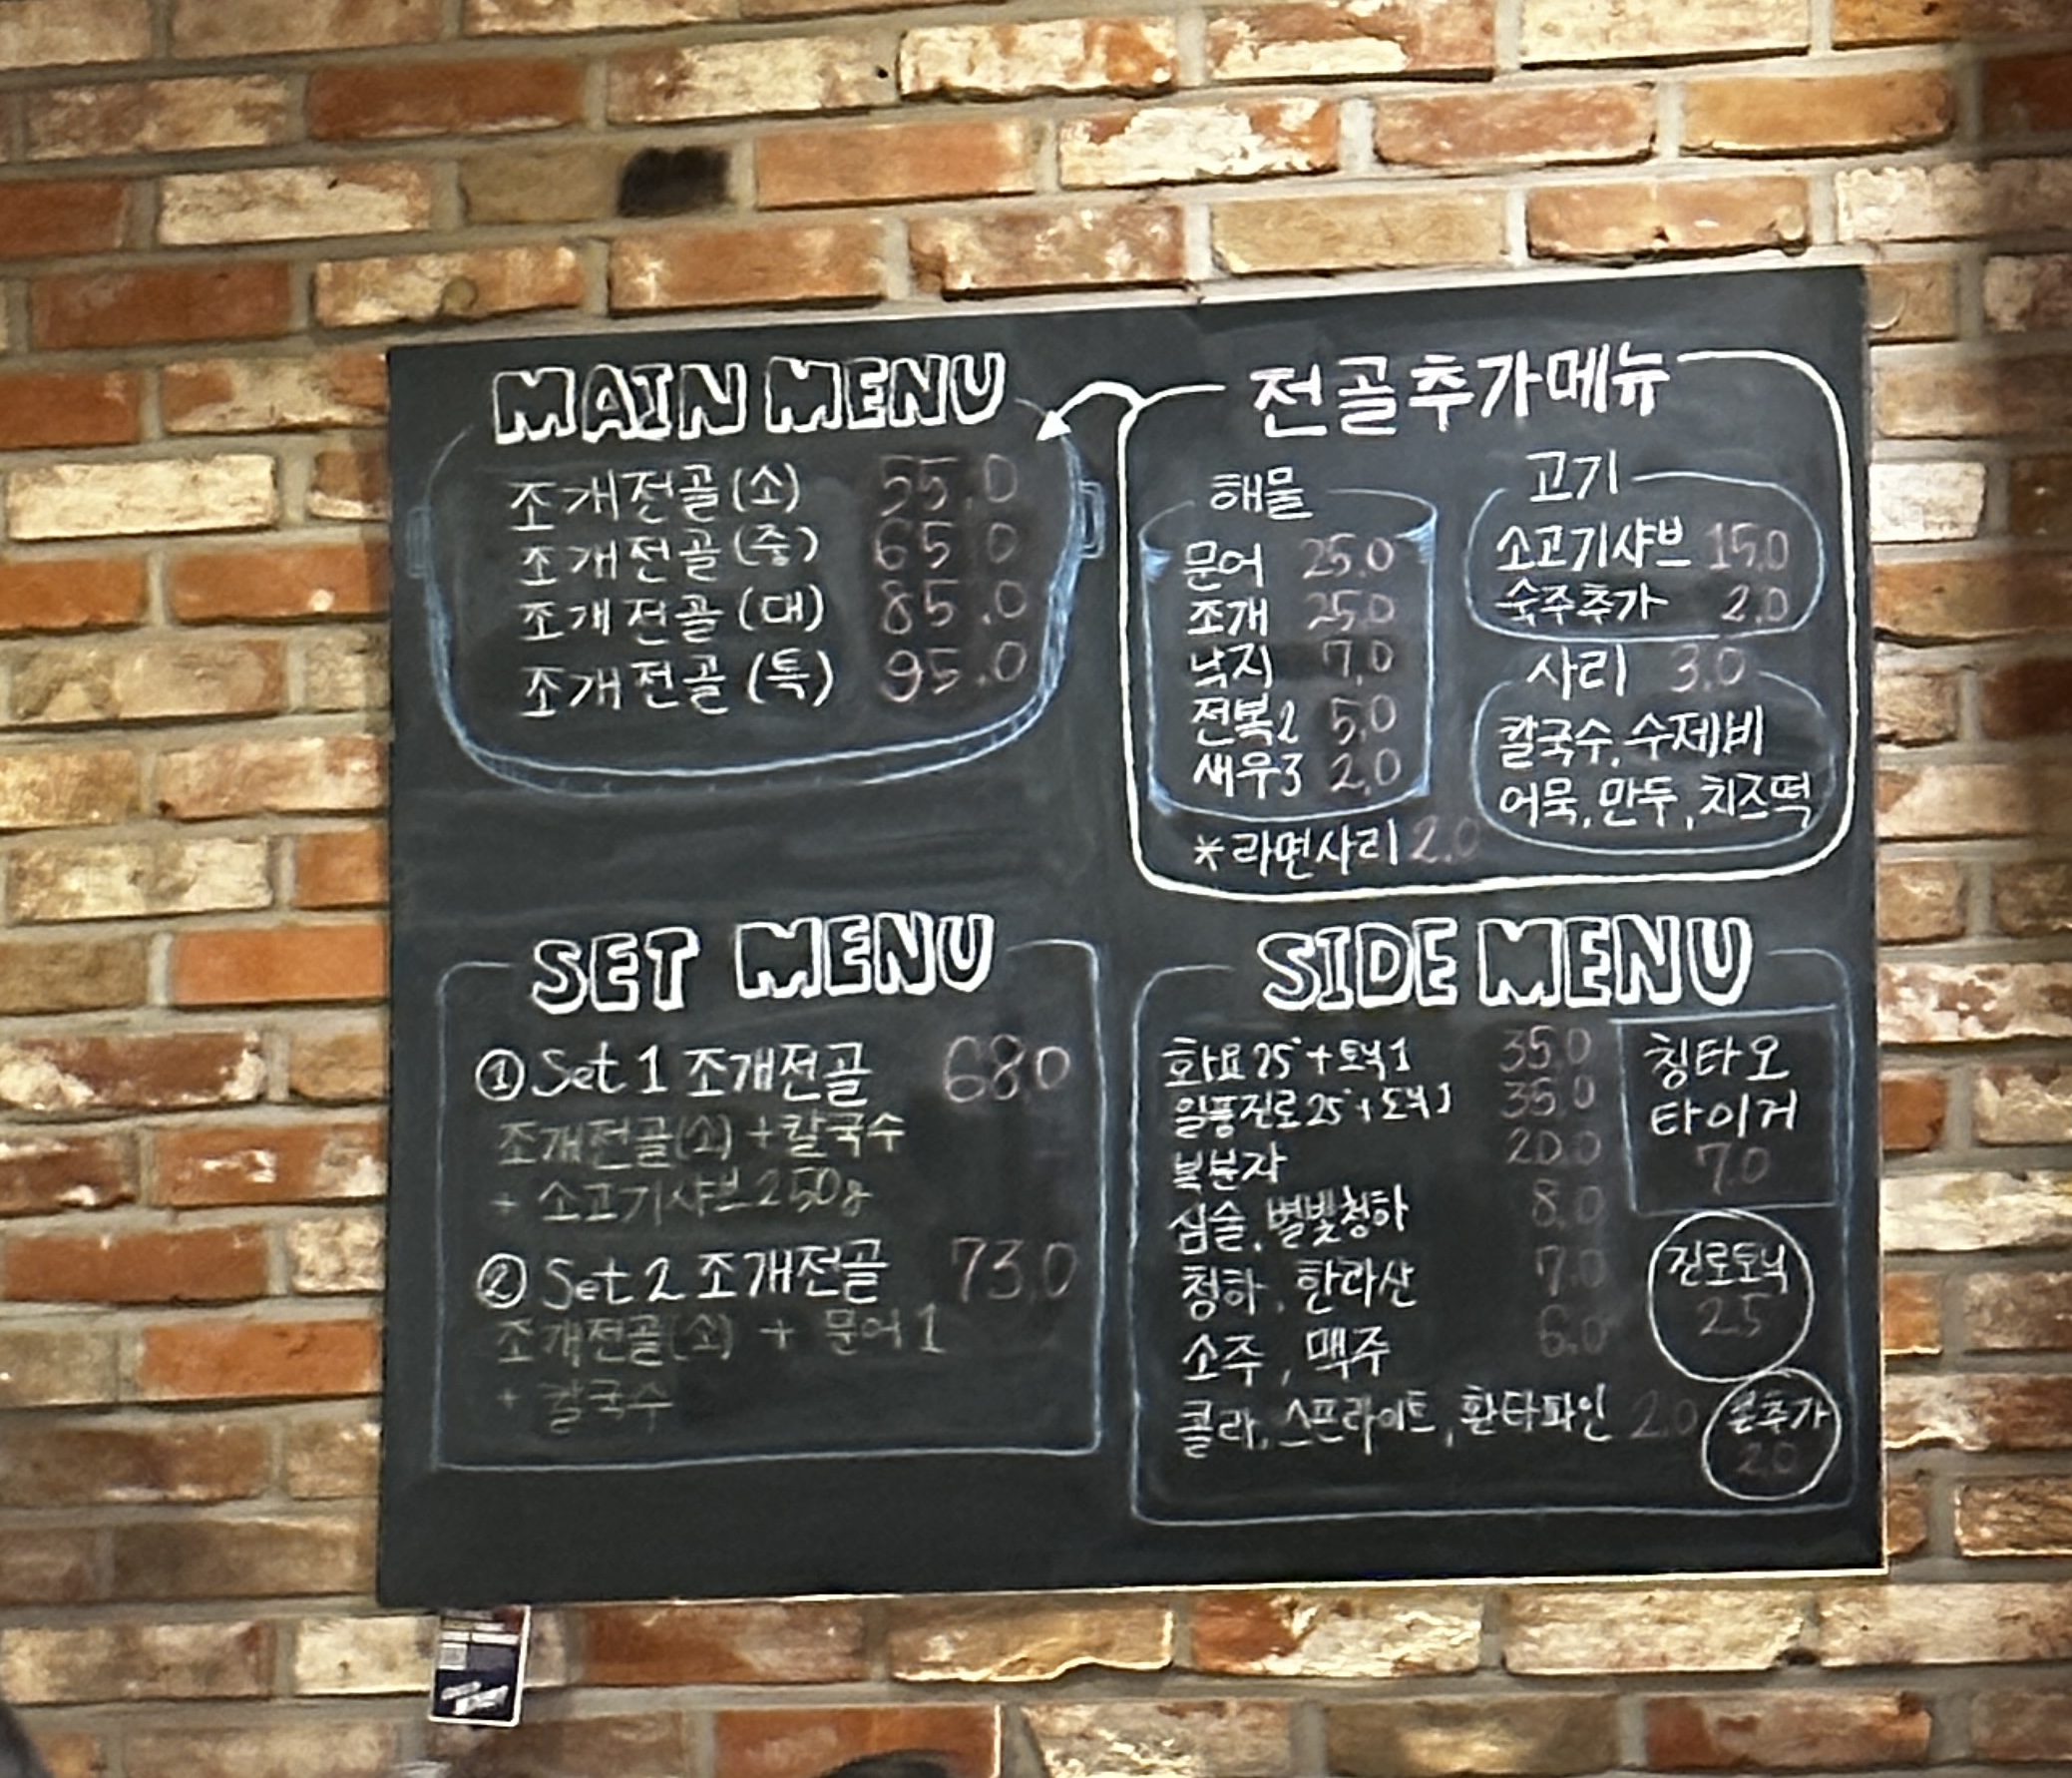 MAIN MENU
조개전골(소) 55.0
조개전골(중) 65.0
조개전골(대) 85.0
조개전골(특) 95.0
전골추가메뉴
해물
문어 25.0
조개 25.0
낙지 7.0
전복2 5.0
새우3 2.0
*라면사리 2.0
고기
소고기샤브 15.0
숙주추가 2.0
사리 3.0
칼국수, 수제비
어묵, 만두, 치즈떡
SET MENU
① Set 1 조개전골 68.0
조개전골(소) + 칼국수
+ 소고기샤브 250g
② Set 2 조개전골 73.0
조개전골(소) + 문어 1
+ 칼국수
SIDE MENU
화요 25° + 토닉 1 35.0
일품진로 25° + 토닉 1 35.0
복분자 20.0
심술, 별빛청하 8.0
청하, 한라산 7.0
소주, 맥주 6.0
콜라, 스프라이트, 환타파인 2.0
칭타오
타이거
7.0
진로토닉
2.5
추가
2.0